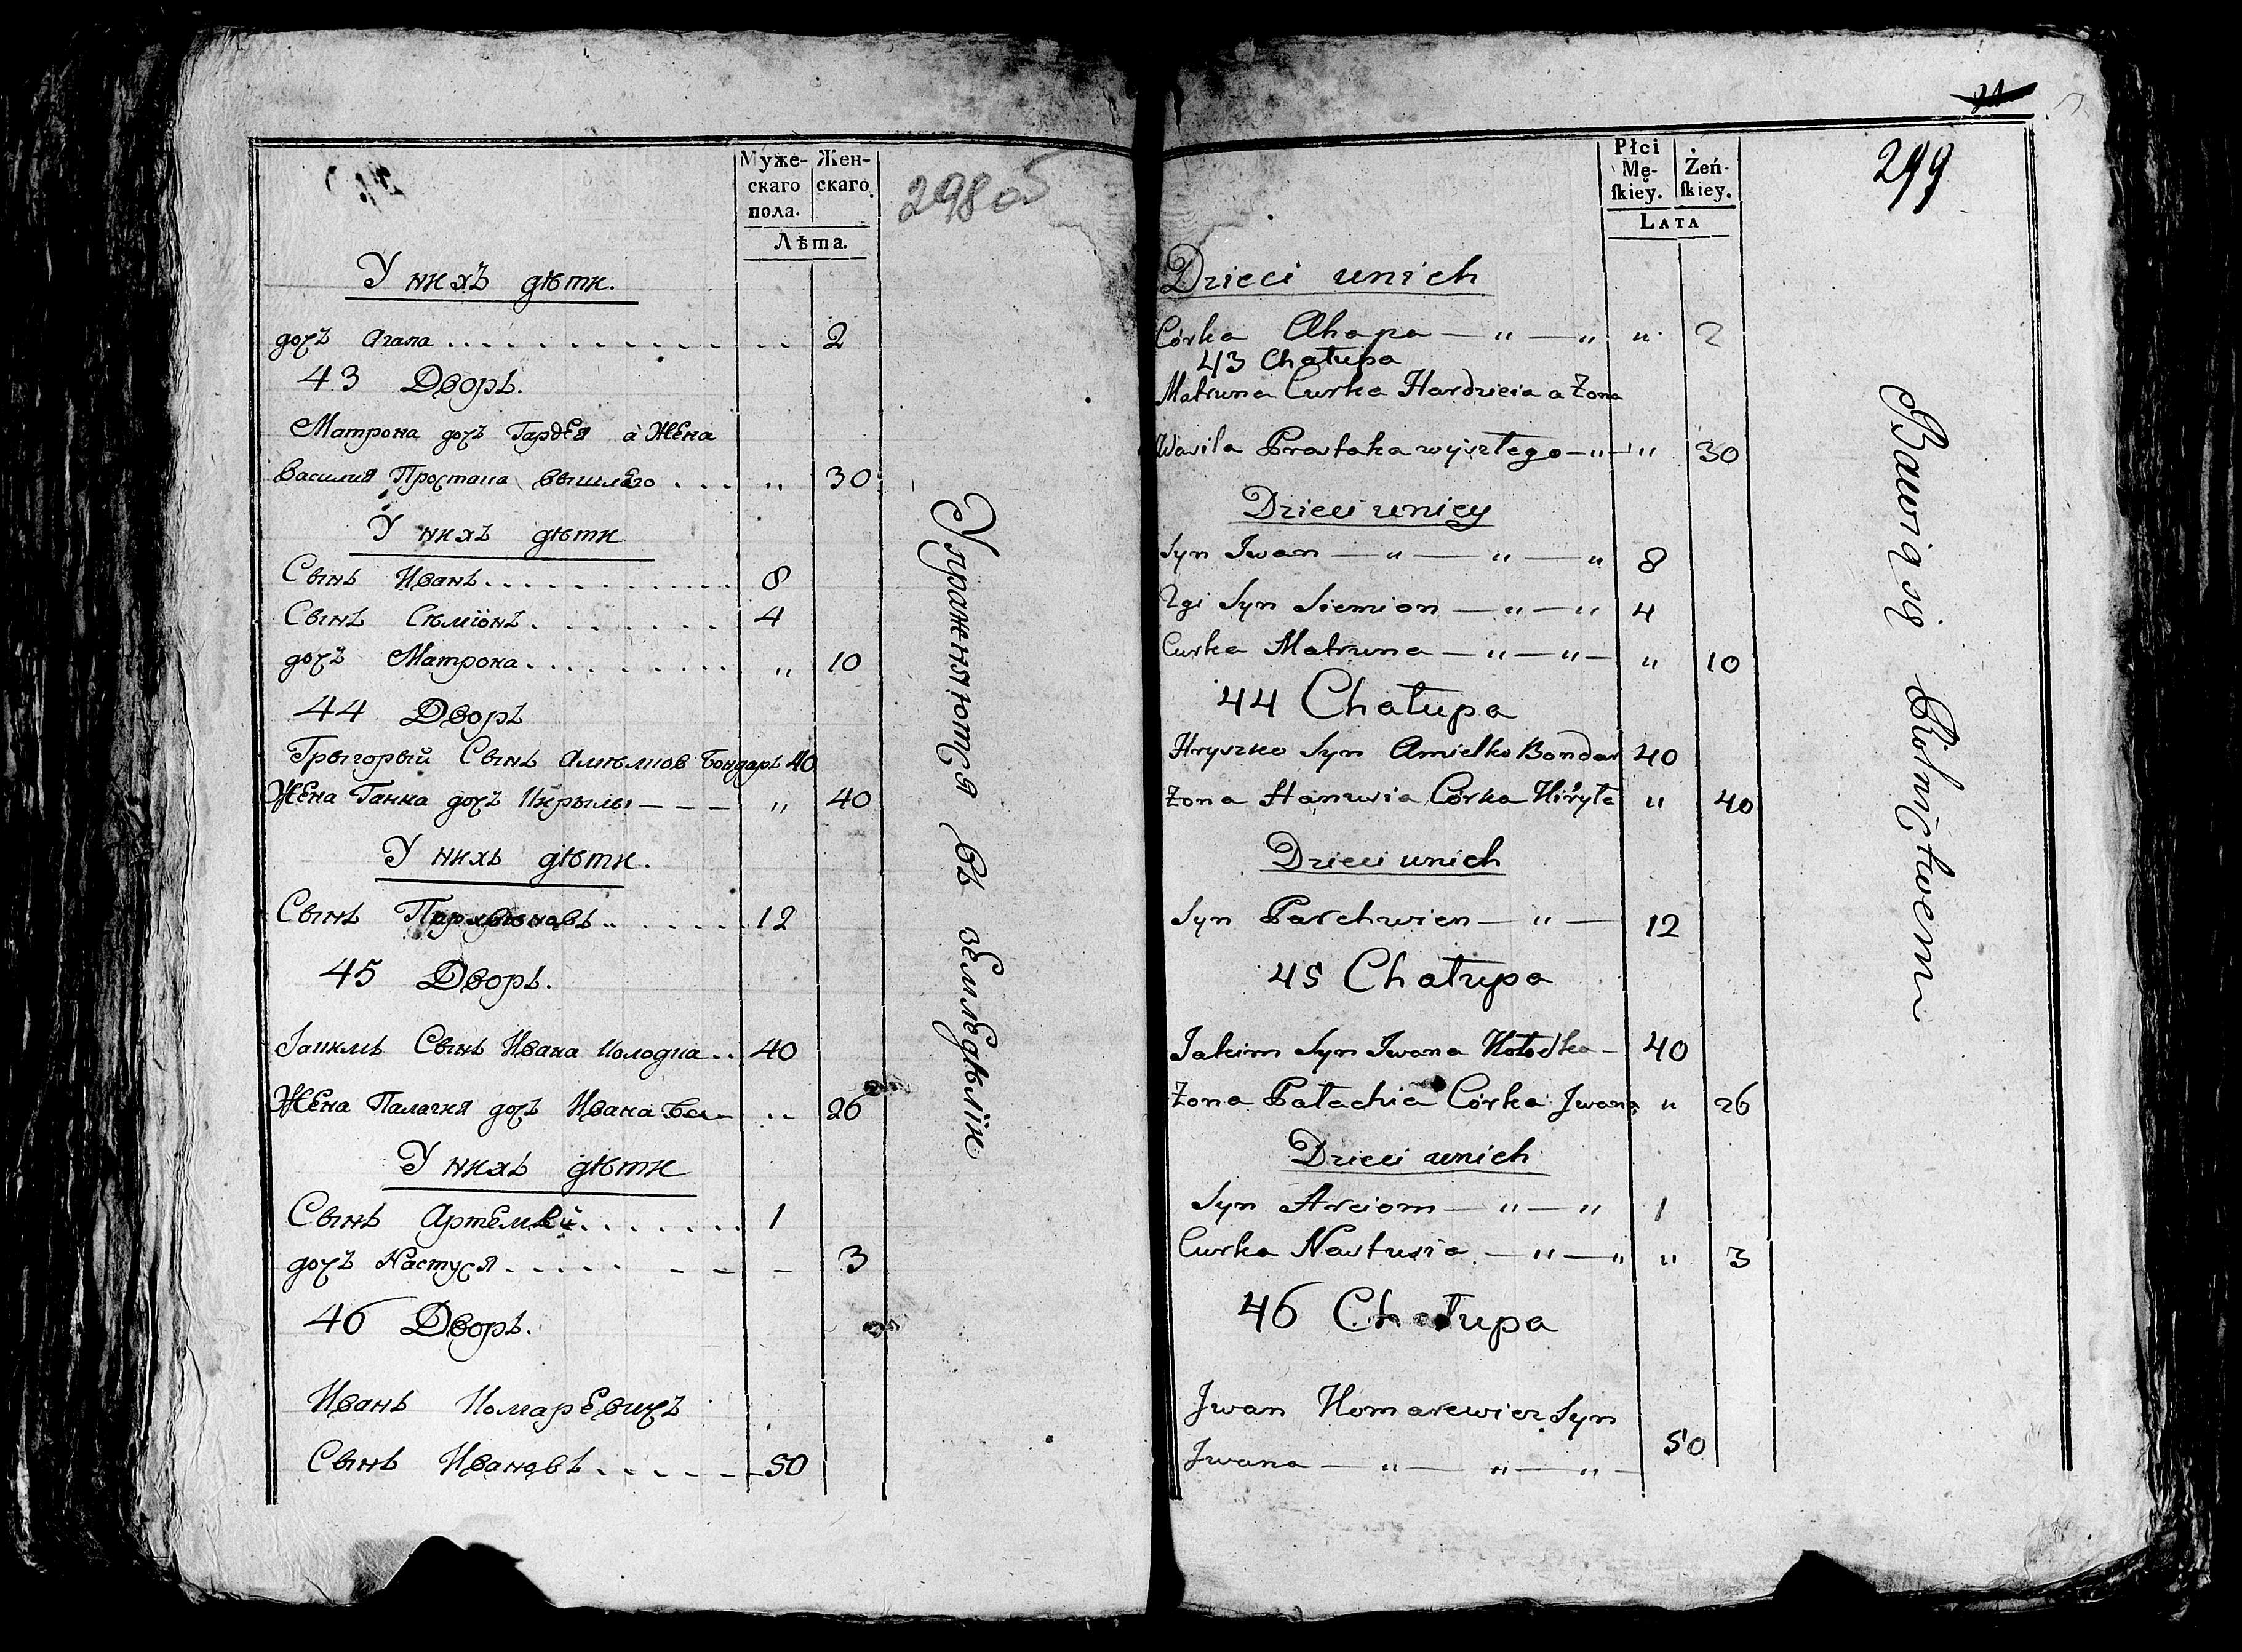 Муже- Жен-
скаго скаго
пола.
Лѣта.
298об
У нихъ дѣти.
дочъ Агапа . . . . . . . . . . . . 2
43 Дворъ.
Матрона дочъ Гардея а Жена
Василия Простака вышлаго . . . „ 30
У нихъ дѣти
Сынъ Иванъ . . . . . . . . . . 8
Сынъ Сѣміонъ . . . . . . . 4
дочъ Матрона . . . . . . . . . „ 10
44 Дворъ
Грыгорый Сынъ Амѣлков Бондарь 40
Жена Ганна дочъ Кирылы — — — „ 40
У нихъ дѣти.
Сынъ . . . . . . 12
45 Дворъ.
Іакимъ Сынъ Ивана Колодка . . 40
Жена Палагия дочъ Ивана „ 26
У нихъ дѣти
Сынъ Артемѣй . . . . . . . 1
дочъ Настуся . . . . . — — — 3
46 Дворъ.
Иванъ Комаревичъ
Сынъ Ивановъ . . . . . — 50
Упражняются въ земледѣліи
Płci
Mę- Żeń-
ſkiey. ſkiey.
LATA
299
Dzieci unich
Córka Ahapa — „ — „ „ 2
43 Chałupa
Matruna Curka Hardzieia a Żona
Wasila Prastaka wyszłego — „ — „ 30
Dzieci uniey
Syn Iwan — „ — „ — „ 8
2gi Syn Siemion — „ — „ 4
Curka Matruna — „ — „ — „ 10
44 Chałupa
Hryszko Syn Amielko Bondar 40
Żona Hanusia Córka Kiryła „ 40
Dzieci unich
Syn Parchwien — „ — 12
45 Chałupa
Jakim Syn Iwana Kołodka — 40
Żona Pałachia Córka Iwana „ 26
Dzieci unich
Syn Arciom — „ — „ 1
Curka Nastusia — „ — „ „ 3
46 Chałupa
Iwan Komarewicz Syn
Iwana — „ — „ — „ — 50
Bawią się Rolnictwem